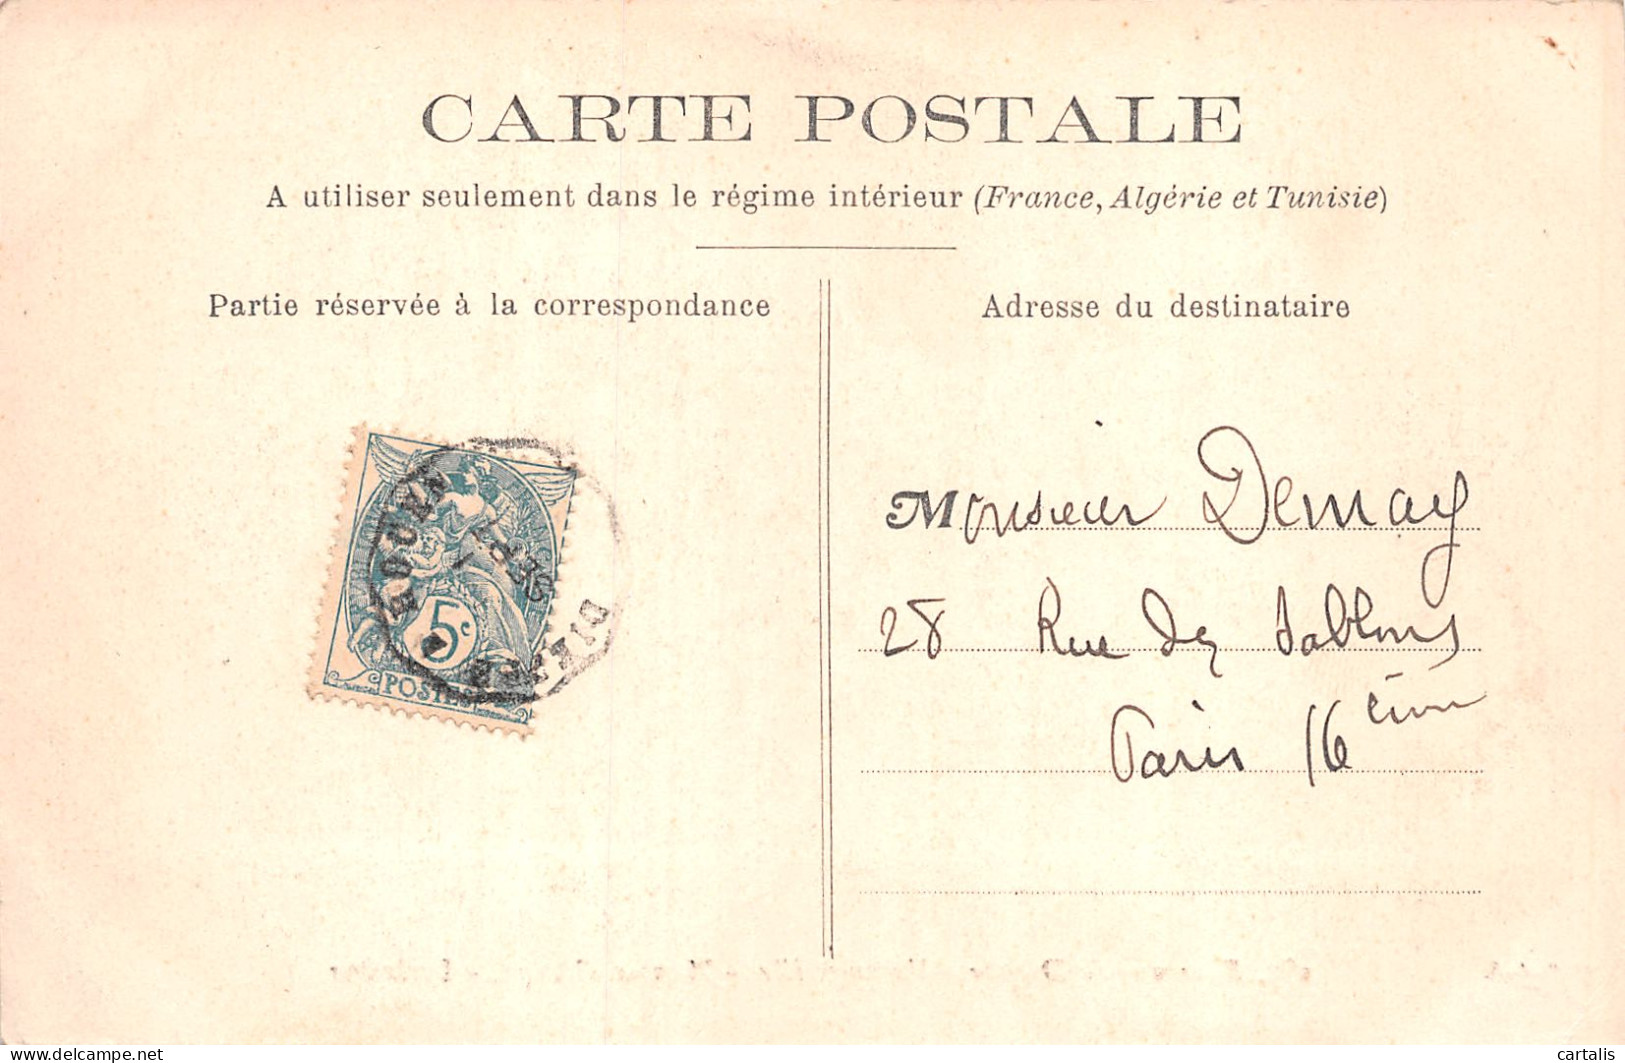 CARTE POSTALE
A utiliser seulement dans le régime intérieur (France, Algérie et Tunisie)
Partie réservée à la correspondance
Adresse du destinataire
5c
POSTES
DIEPPE
ROUEN
Monsieur Demay
28 Rue des Sablons
Paris 16 ème
delcampe.net
cartalis